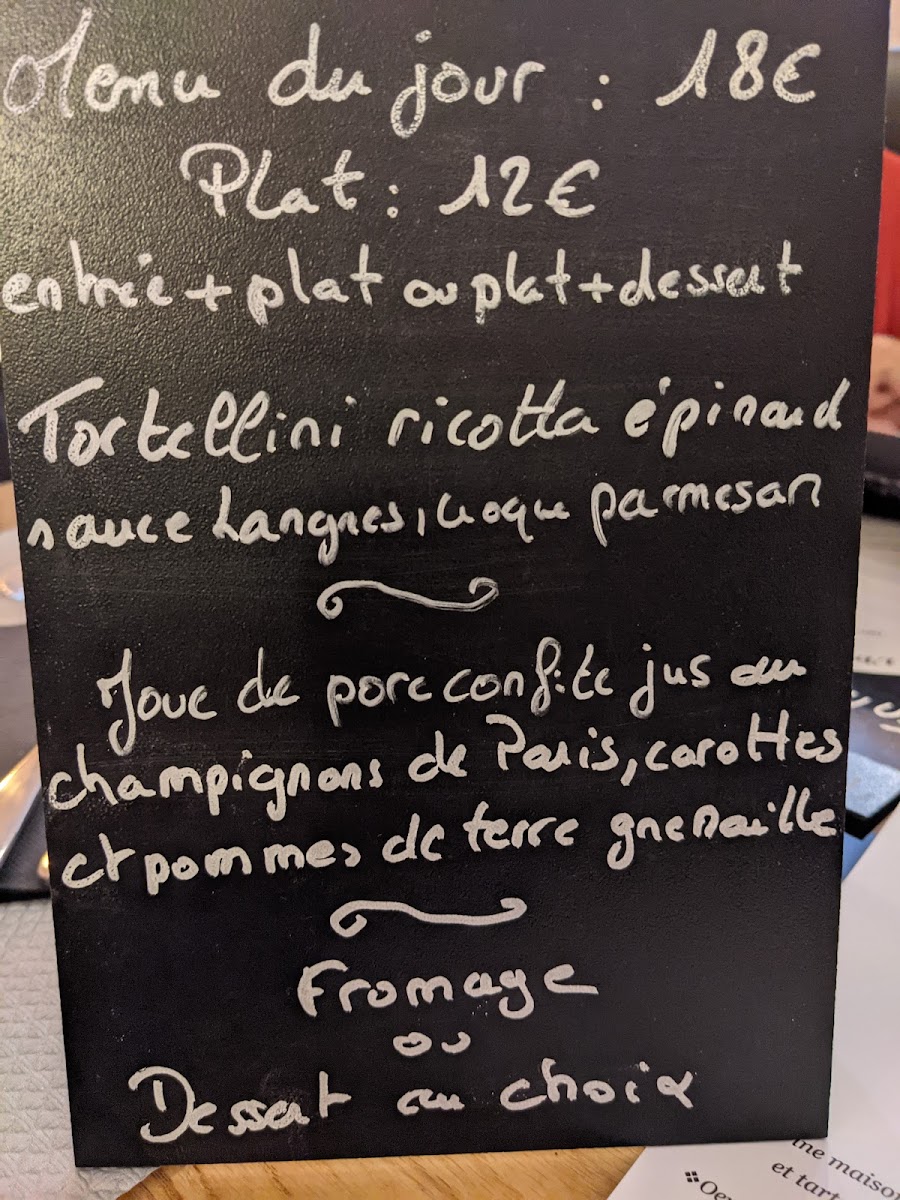 Menu du jour : 18€
Plat : 12€
entrée + plat ou plat + dessert
Tortellini ricotta épinard
sauce Langres, coque parmesan
Joue de porc confite jus au
champignons de Paris, carottes
et pommes de terre grenaille
Fromage
ou
Dessert au choix
ine maison
et tart